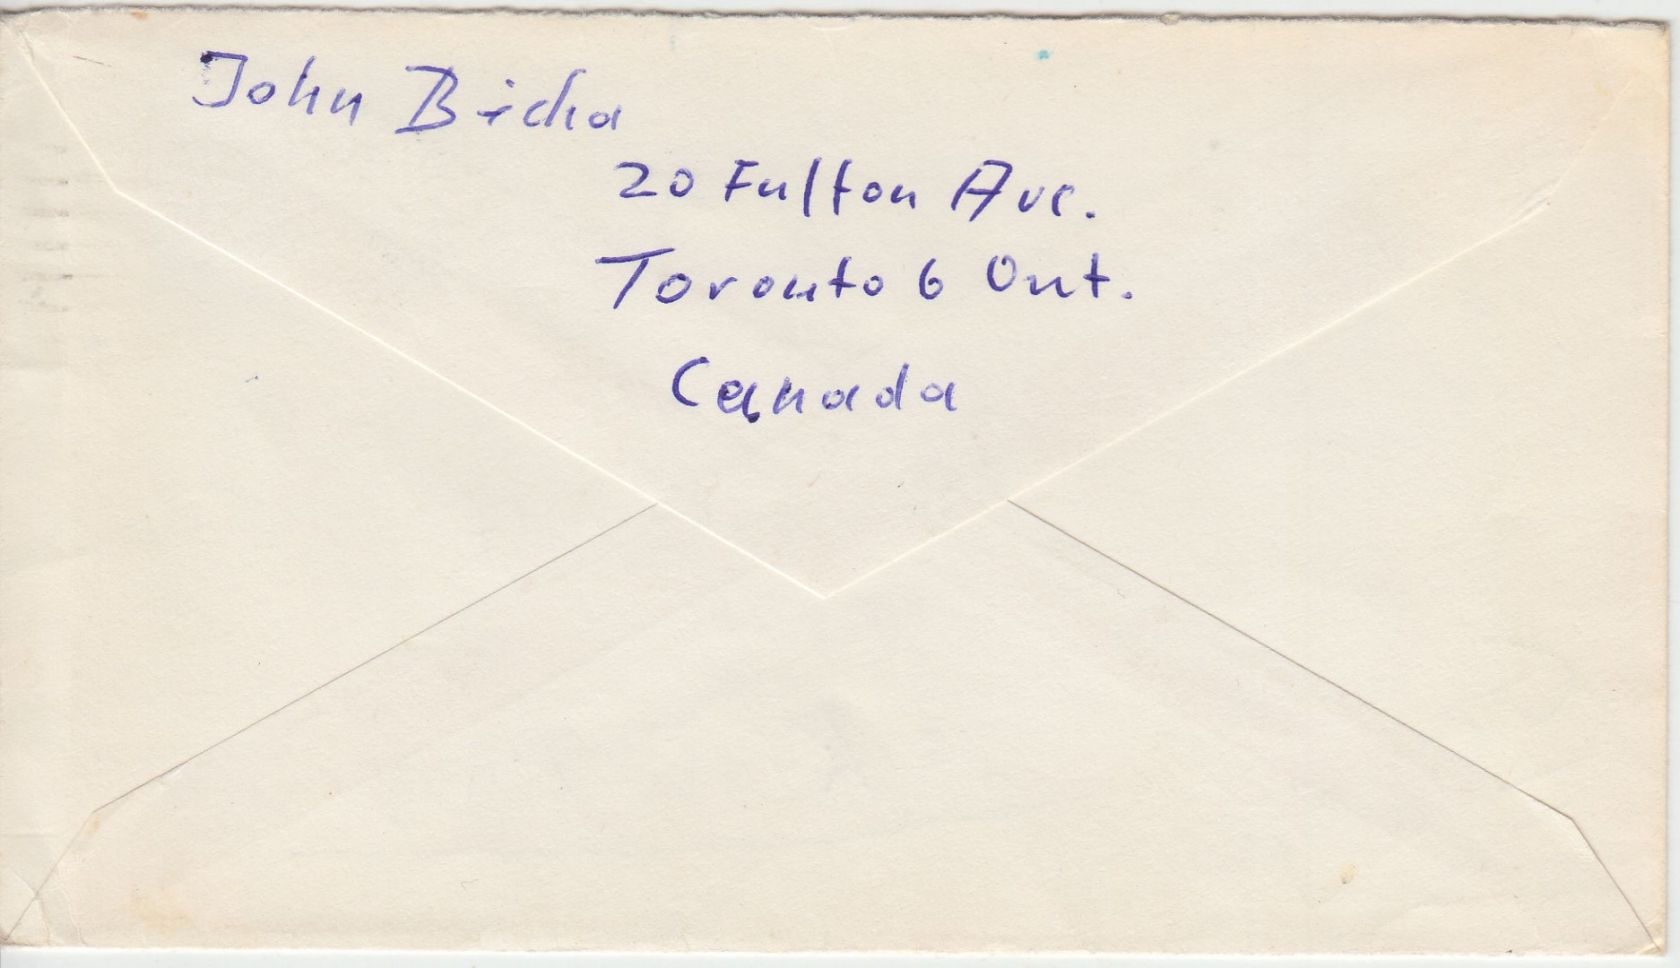 John Bicha
20 Fulton Ave.
Toronto 6 Ont.
Canada